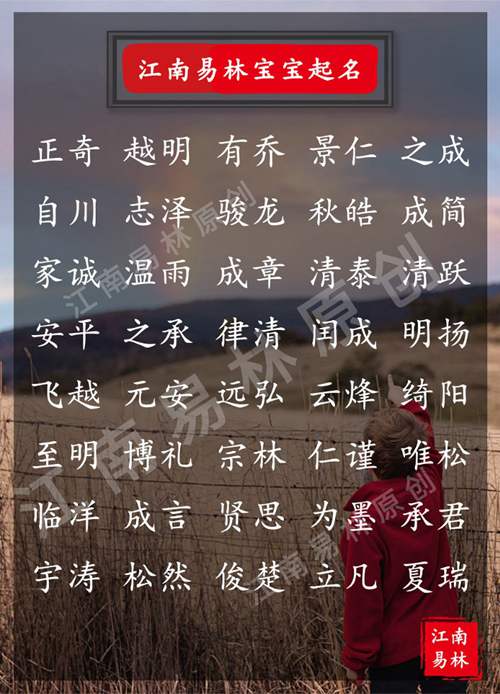 江南易林宝宝起名
正奇 越明 有乔 景仁 之成
自川 志泽 骏龙 秋皓 成简
家诚 温雨 成章 清泰 清跃
安平 之承 律清 闰成 明扬
飞越 元安 远弘 云烽 绮阳
至明 博礼 宗林 仁谨 唯松
临洋 成言 贤思 为墨 承君
宇涛 松然 俊楚 立凡 夏瑞
江南
易林
江南易林原创
江南易林原创
江南易林原创